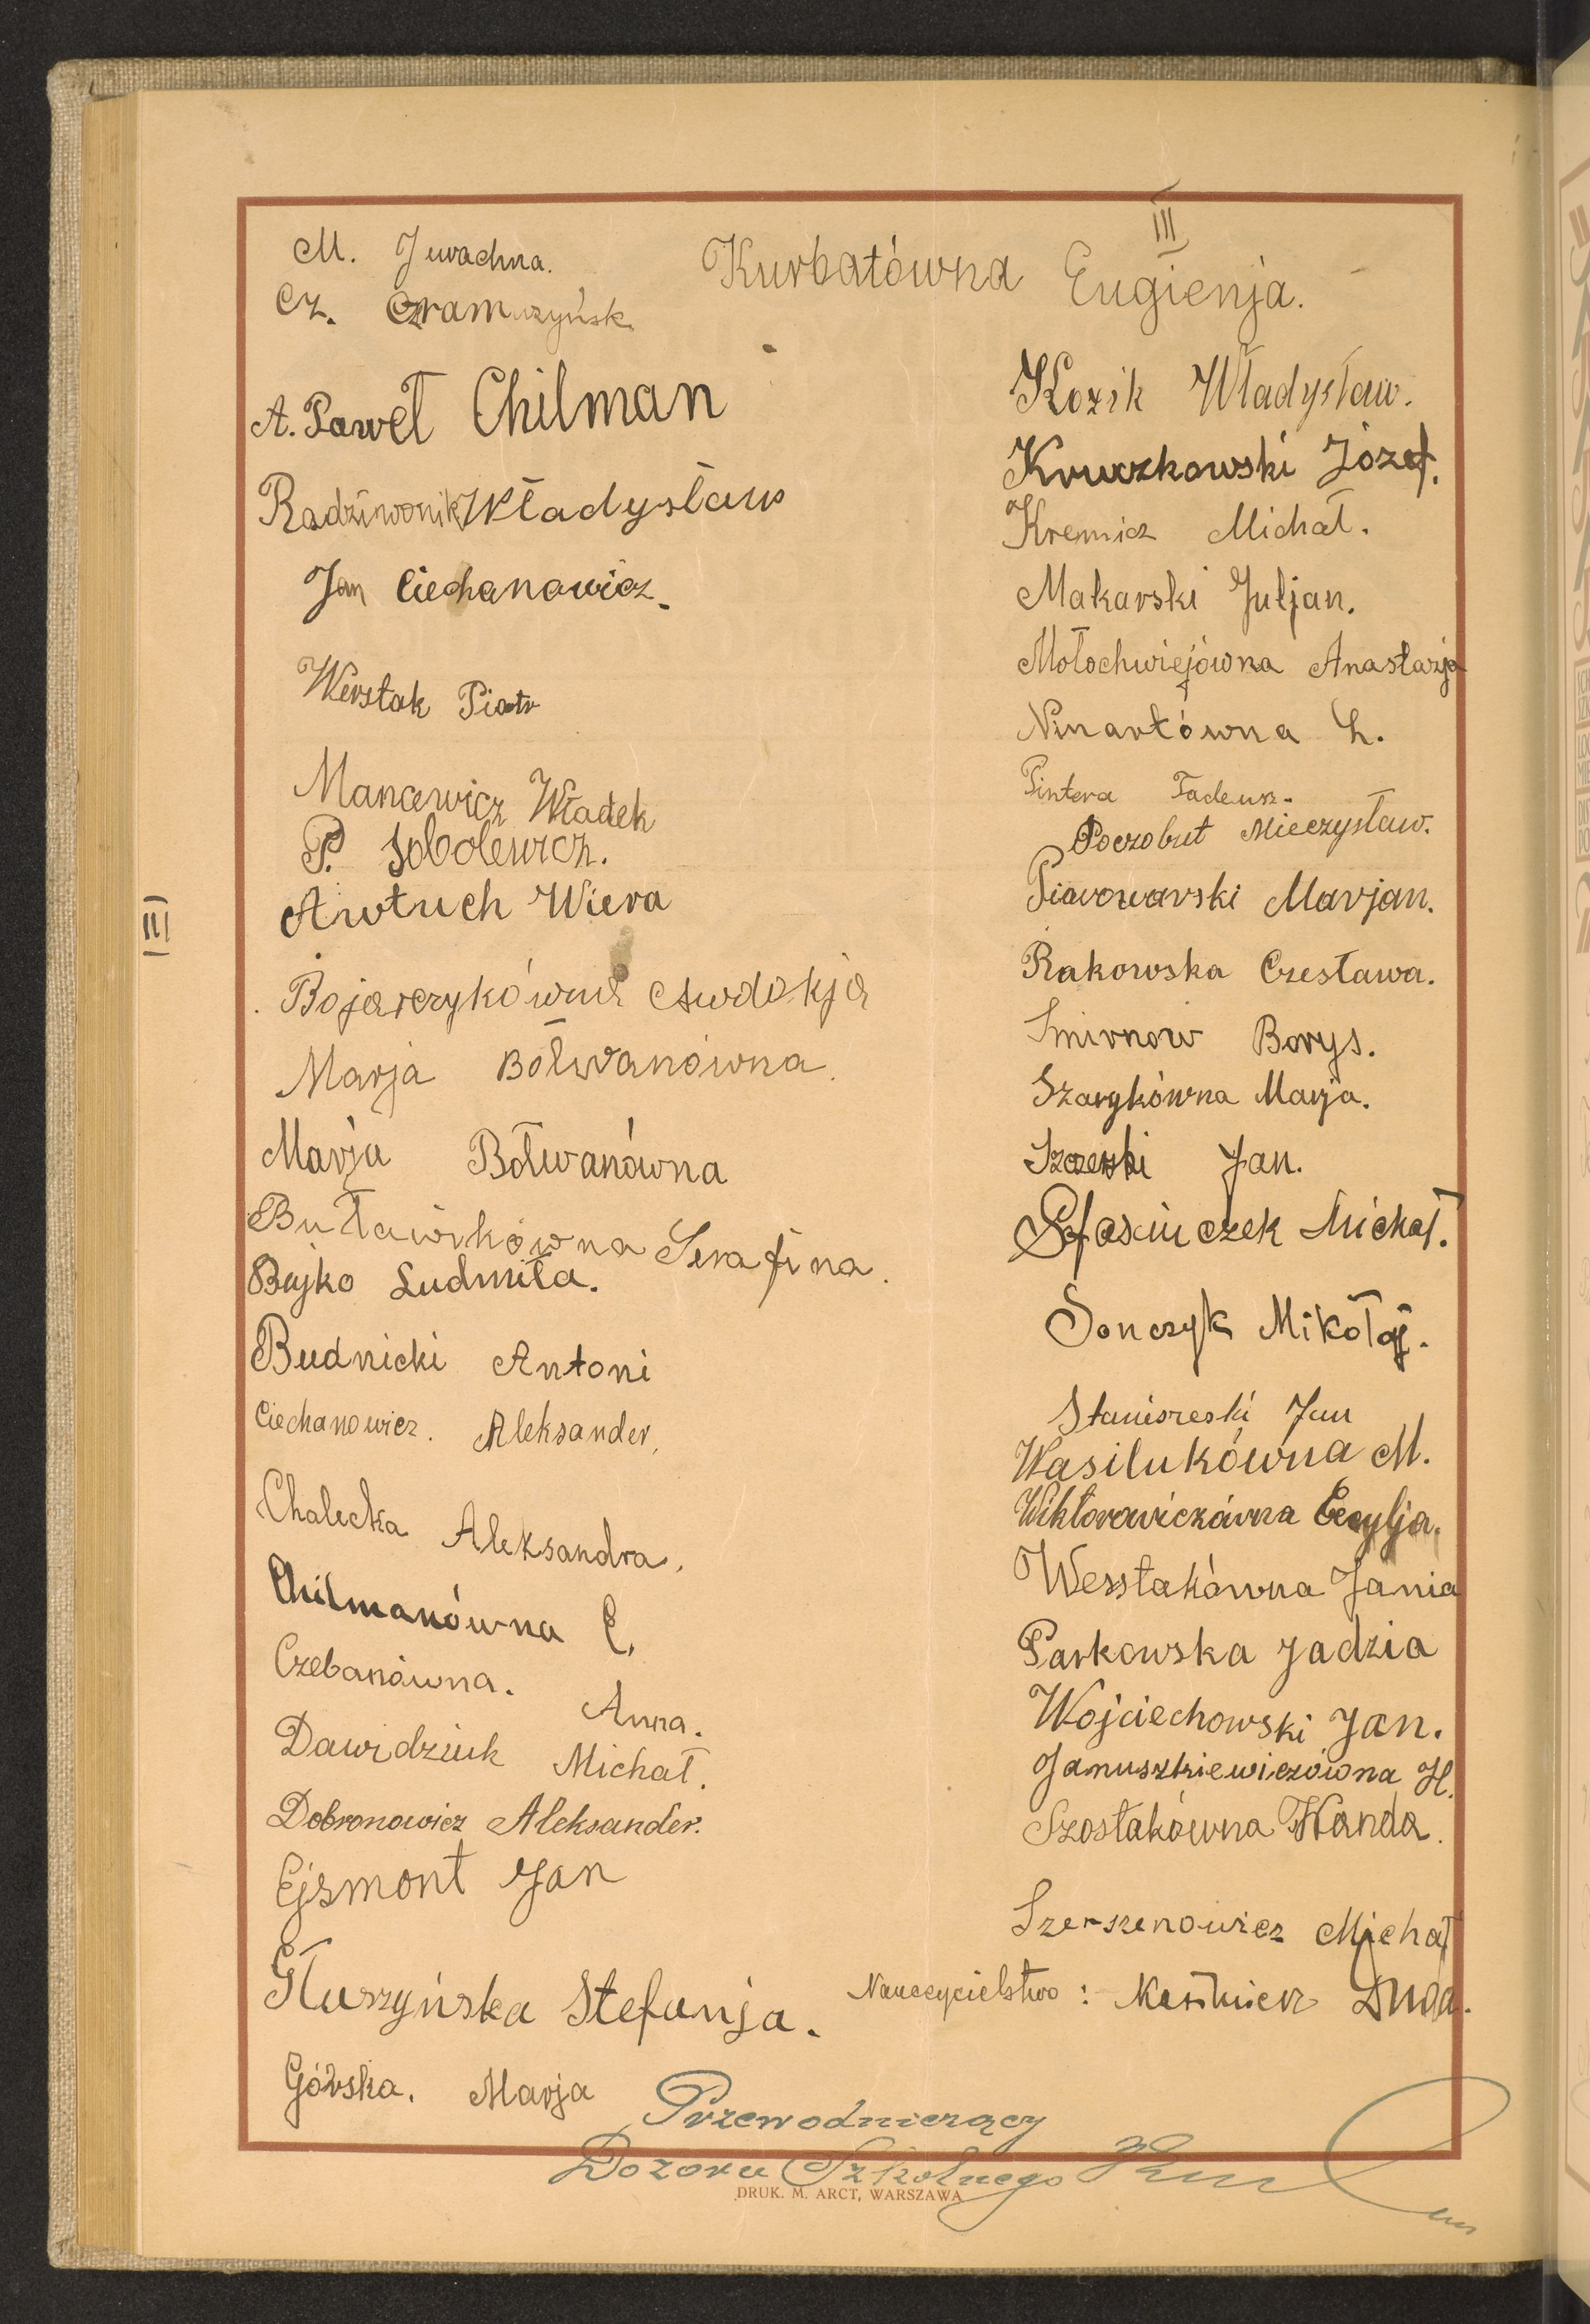 III
M. Jwachna.
Cz.
Kurbatówna Eugienja.
A. Paweł Chilman
Radziwonik Władysław
Jan Ciechanowicz.
Werstak Piotr
Mancewicz Władek
P. Sobolewicz.
Awtuch Wiera
Bojarczykówna Awdokja
Marja Bołwanówna.
Marja Bołwanówna
Buławikówna Serafina.
Bujko Ludmiła.
Budnicki Antoni
Ciechanowicz. Aleksander,
Chalecka Aleksandra,
Chilmanówna E.
Czebanówna. Anna.
Dawidziuk Michał.
Dobronowicz Aleksander.
Ejsmont Jan
Głuszyńska Stefanja.
Górska. Marja
Kozik Władysław.
Kruczkowski Józef.
Kremicz Michał.
Makarski Juljan.
Mołochwiejówna Anastazja
Ninartówna L.
Pintera Tadeusz.
Poczobut Mieczysław.
Piwowarski Marjan.
Rakowska Czesława.
Smirnow Borys.
Szarykówna Marja.
Szczerski Jan.
Michał.
Sonczyk Mikołaj.
Jan
Wasilukówna M.
Wiktorowiczówna Cecylja.
Werstakówna Jania
Parkowska Jadzia
Wojciechowski Jan.
Januszkiewiczówna H.
Szostakówna Wanda.
Szerszenowicz Michał
Nauczycielstwo: Kazimierz Duda.
Przewodniczący
Dozoru Szkolnego
DRUK. M. ARCT, WARSZAWA
III